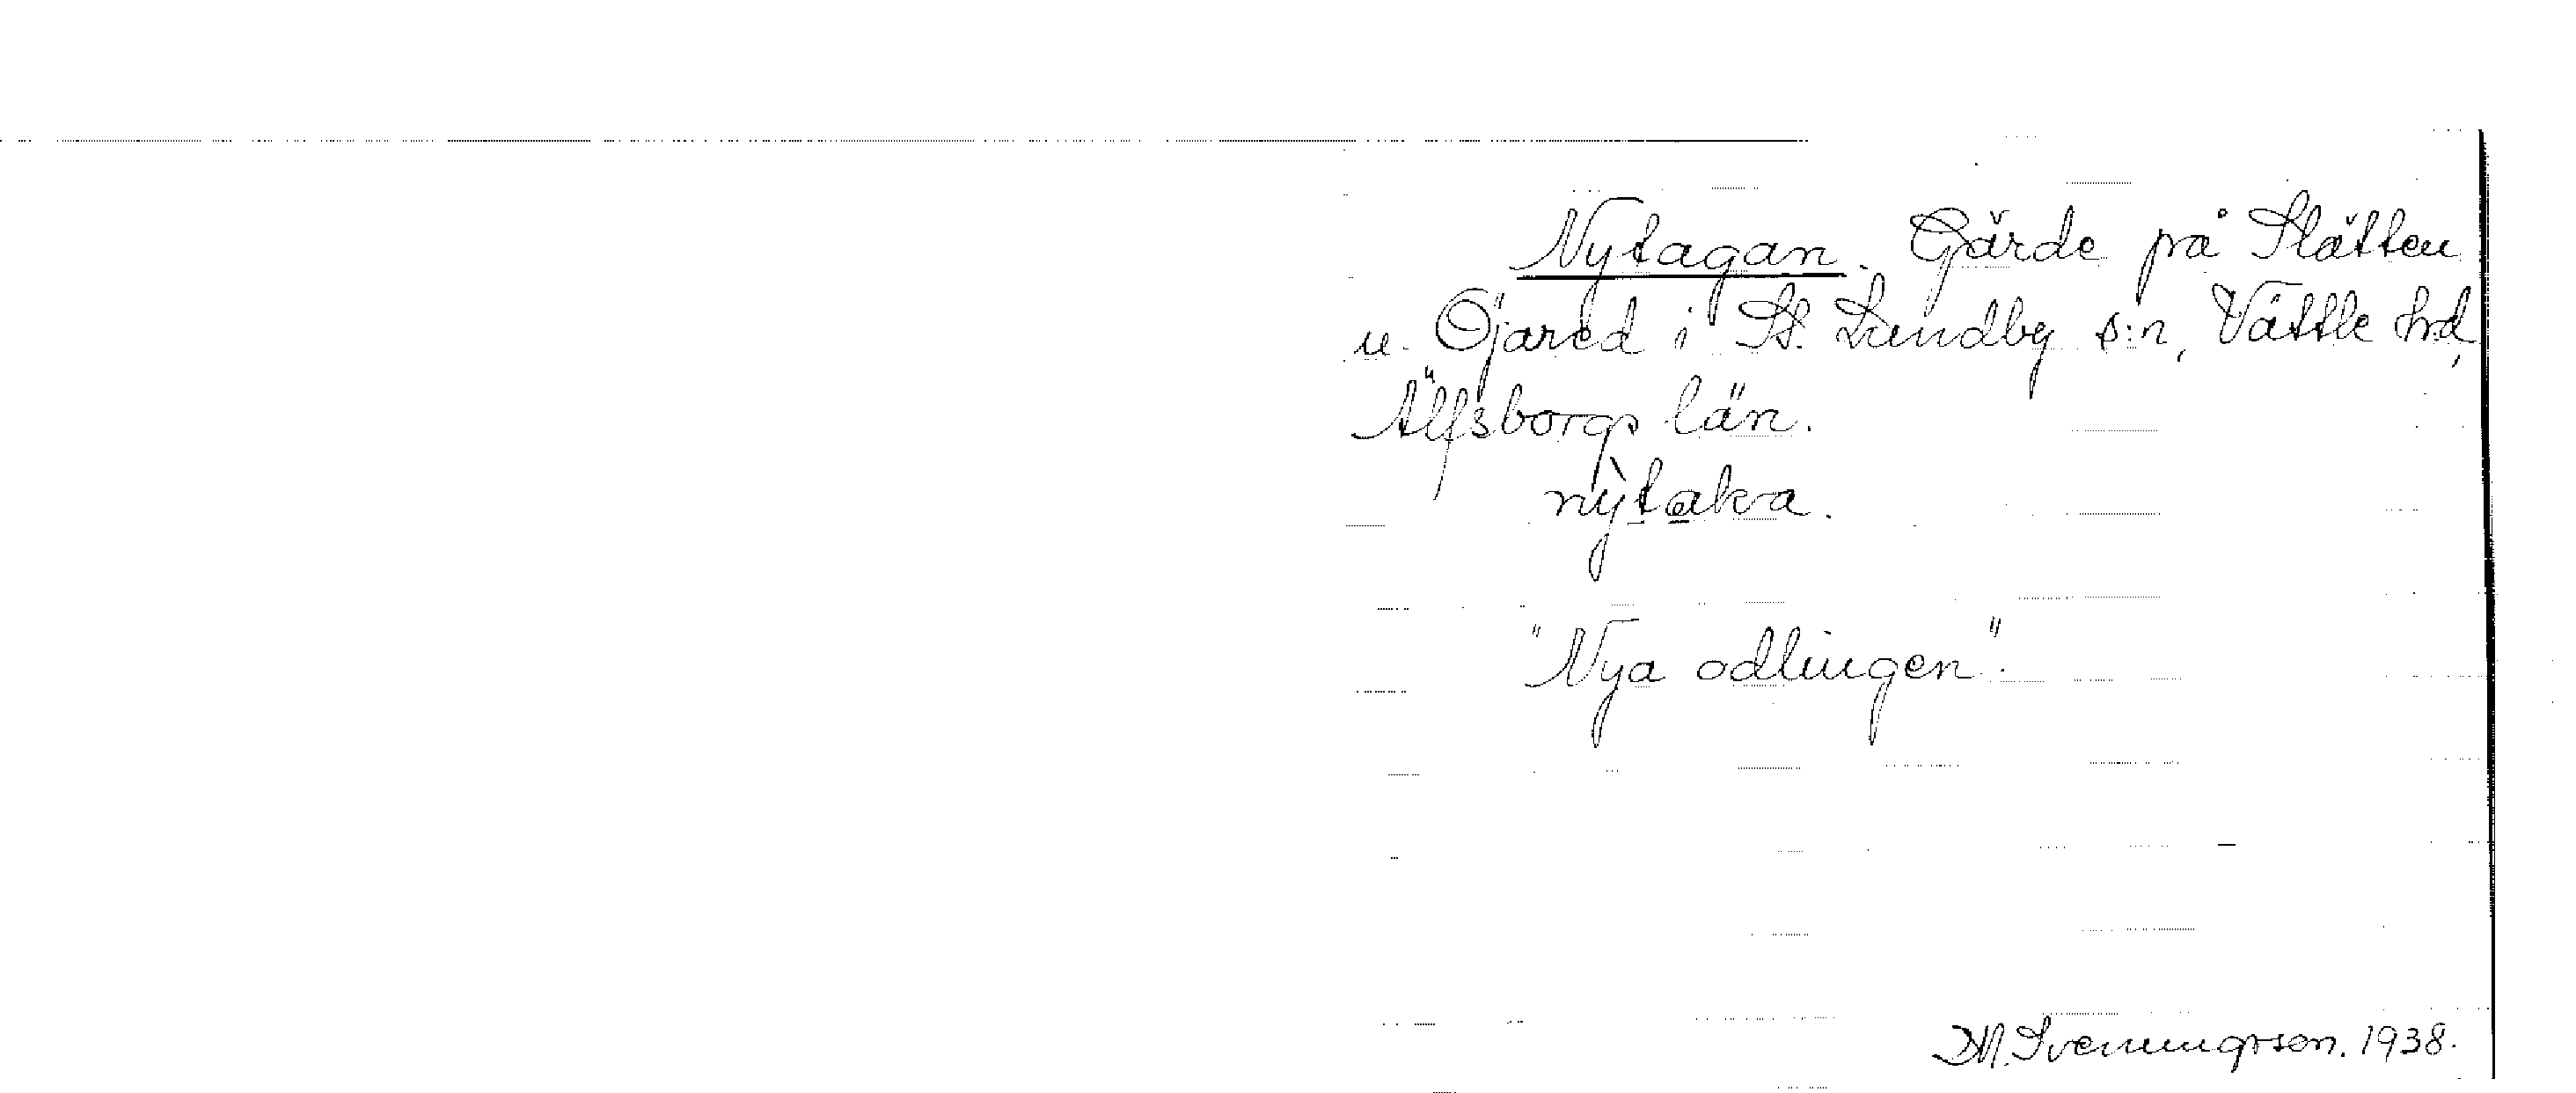 Nytagan. Gärde på Slätten
u. Öjared i St. Lundby s:n, Vättle hd,
Älfsborgs län.
nỳtaka.
"Nya odlingen".
M. Svenningsson. 1938.